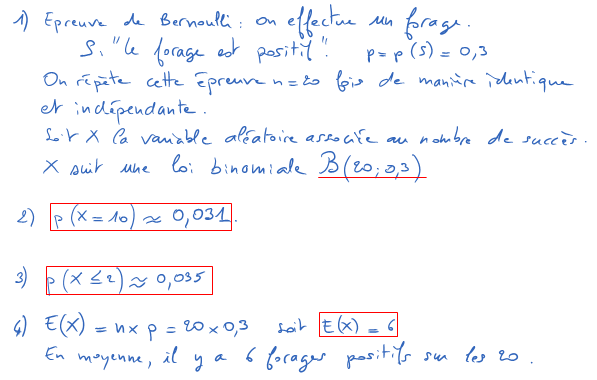 1) Epreuve de Bernoulli : on effectue un forage.
S: "le forage est positif". p = p(S) = 0,3
On répète cette épreuve n = 20 fois de manière identique
et indépendante.
Soit X la variable aléatoire associée au nombre de succès.
X suit une loi binomiale B(20; 0,3)
2) p(X = 10) ≈ 0,031.
3) p(X ≤ 2) ≈ 0,035
4) E(X) = n × p = 20 × 0,3 soit E(X) = 6
En moyenne, il y a 6 forages positifs sur les 20.